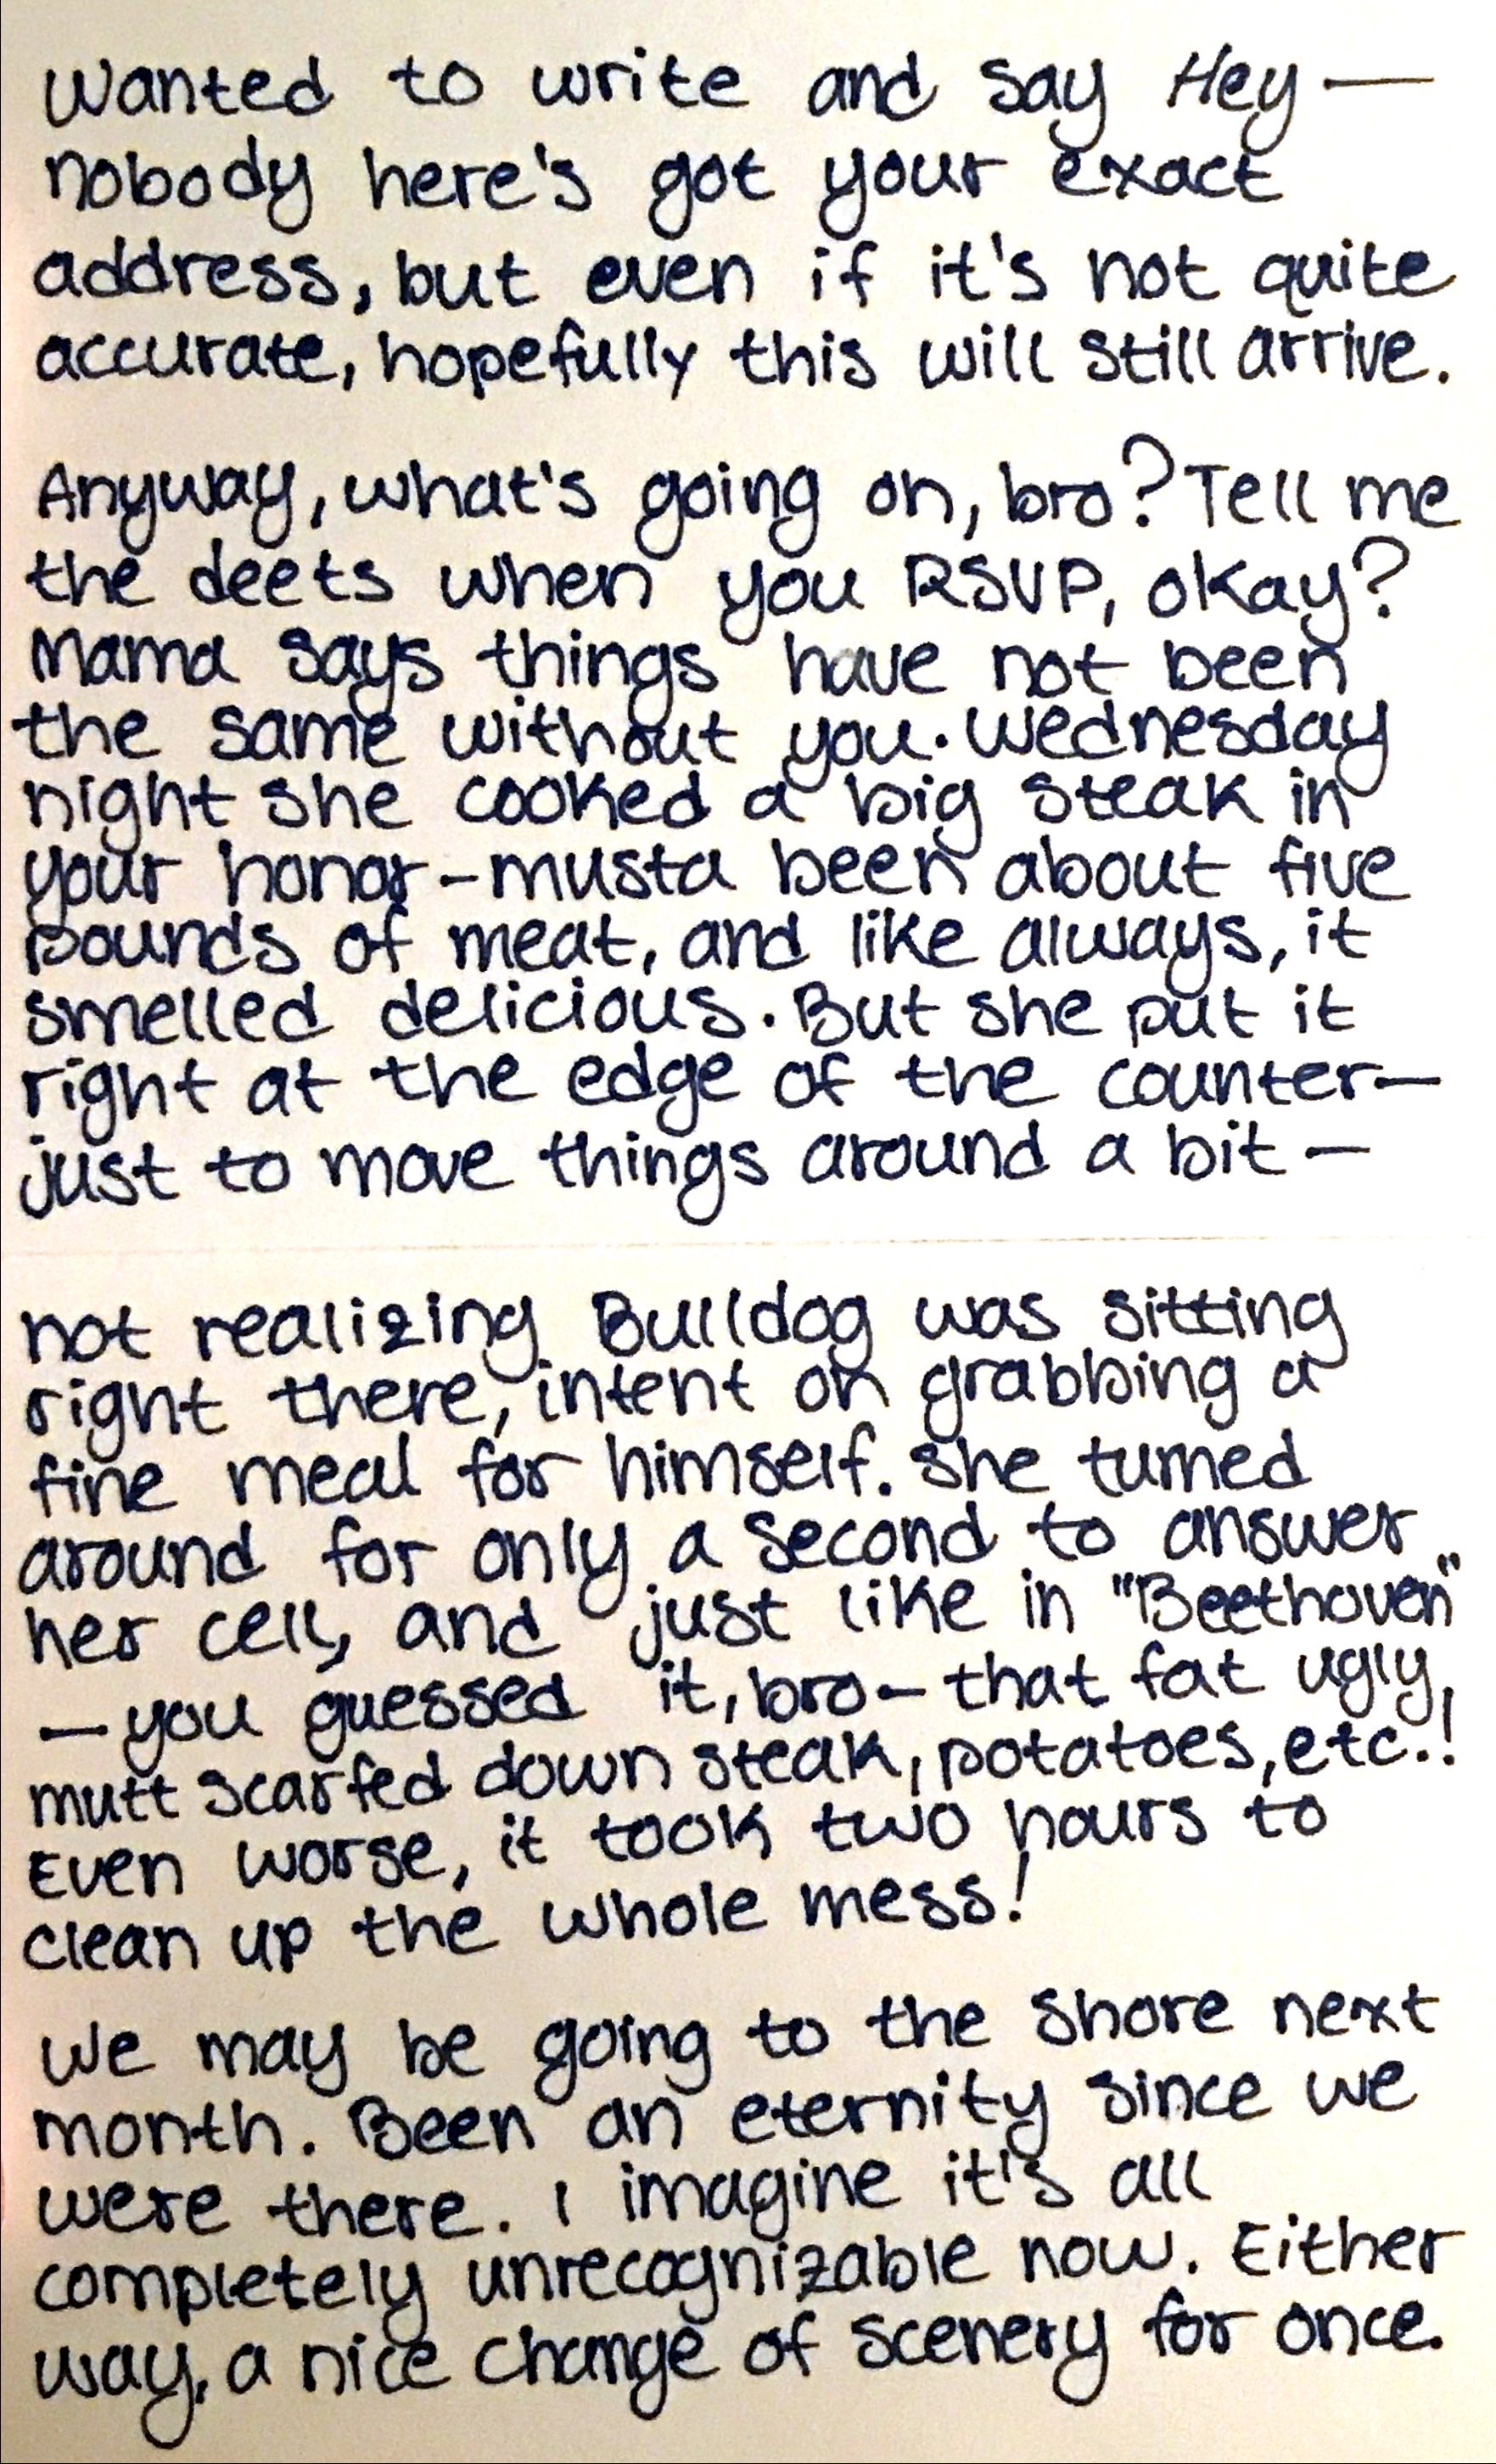 Wanted to write and say Hey —
nobody here's got your exact
address, but even if it's not quite
accurate, hopefully this will still arrive.
Anyway, what's going on, bro? Tell me
the deets when you RSVP, okay?
Mama says things have not been
the same without you. Wednesday
night she cooked a big steak in
your honor - musta been about five
pounds of meat, and like always, it
smelled delicious. But she put it
right at the edge of the counter —
just to move things around a bit —
not realizing Bulldog was sitting
right there, intent on grabbing a
fine meal for himself. She turned
around for only a second to answer
her cell, and just like in "Beethoven"
— you guessed it, bro - that fat ugly
mutt scarfed down steak, potatoes, etc.!
Even worse, it took two hours to
clean up the whole mess!
We may be going to the shore next
month. Been an eternity since we
were there. I imagine it's all
completely unrecognizable now. Either
way, a nice change of scenery for once.